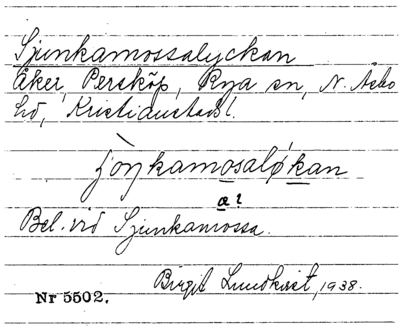 Sjunkamossalyckan
Åker, Perskôp, Rya sn, N. Åsbo
hd, Kristianstads l.
joŋkamosaløkan
a?
Bel. vid Sjunkamossa.
Birgit Lundkvist, 1938.
Nr 5502.